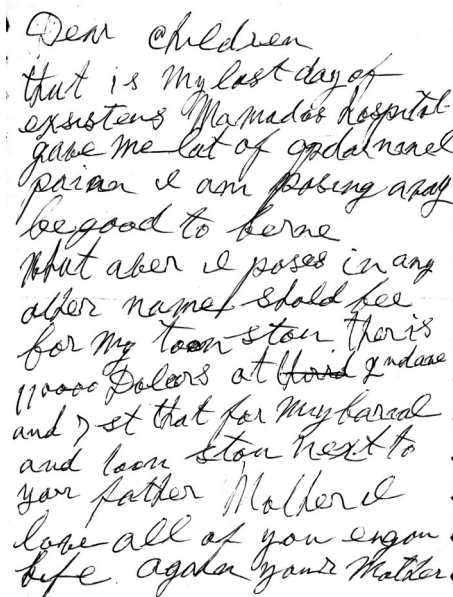 Dear children
that is My last day of
exsistens Mamados hospital
gave me lat of apdaminel
pain I am posing away
be good to berne
What aber I poses in any
other name shold bee
for My toon ston ther is
110000 Dolers at 2 ndave
and 7 st that for My barial
and toon ston next to
your father Mother I
love all of you engoy
life again your Mother